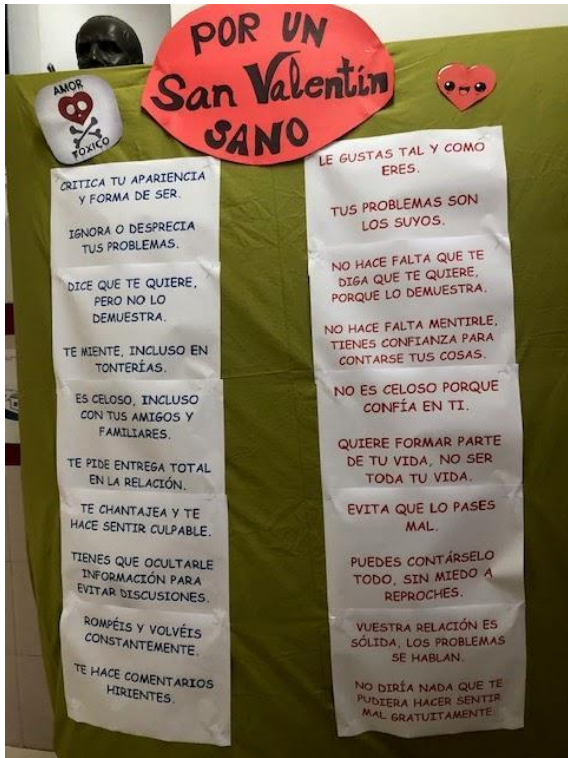 POR UN
San Valentín
SANO
AMOR
TOXICO
CRITICA TU APARIENCIA
Y FORMA DE SER.
IGNORA O DESPRECIA
TUS PROBLEMAS.
DICE QUE TE QUIERE,
PERO NO LO
DEMUESTRA.
TE MIENTE, INCLUSO EN
TONTERÍAS.
ES CELOSO, INCLUSO
CON TUS AMIGOS Y
FAMILIARES.
TE PIDE ENTREGA TOTAL
EN LA RELACIÓN.
TE CHANTAJEA Y TE
HACE SENTIR CULPABLE.
TIENES QUE OCULTARLE
INFORMACIÓN PARA
EVITAR DISCUSIONES.
ROMPÉIS Y VOLVÉIS
CONSTANTEMENTE.
TE HACE COMENTARIOS
HIRIENTES.
LE GUSTAS TAL Y COMO
ERES.
TUS PROBLEMAS SON
LOS SUYOS.
NO HACE FALTA QUE TE
DIGA QUE TE QUIERE,
PORQUE LO DEMUESTRA.
NO HACE FALTA MENTIRLE,
TIENES CONFIANZA PARA
CONTARSE TUS COSAS.
NO ES CELOSO PORQUE
CONFÍA EN TI.
QUIERE FORMAR PARTE
DE TU VIDA, NO SER
TODA TU VIDA.
EVITA QUE LO PASES
MAL.
PUEDES CONTÁRSELO
TODO, SIN MIEDO A
REPROCHES.
VUESTRA RELACIÓN ES
SÓLIDA, LOS PROBLEMAS
SE HABLAN.
NO DIRÍA NADA QUE TE
PUDIERA HACER SENTIR
MAL GRATUITAMENTE.